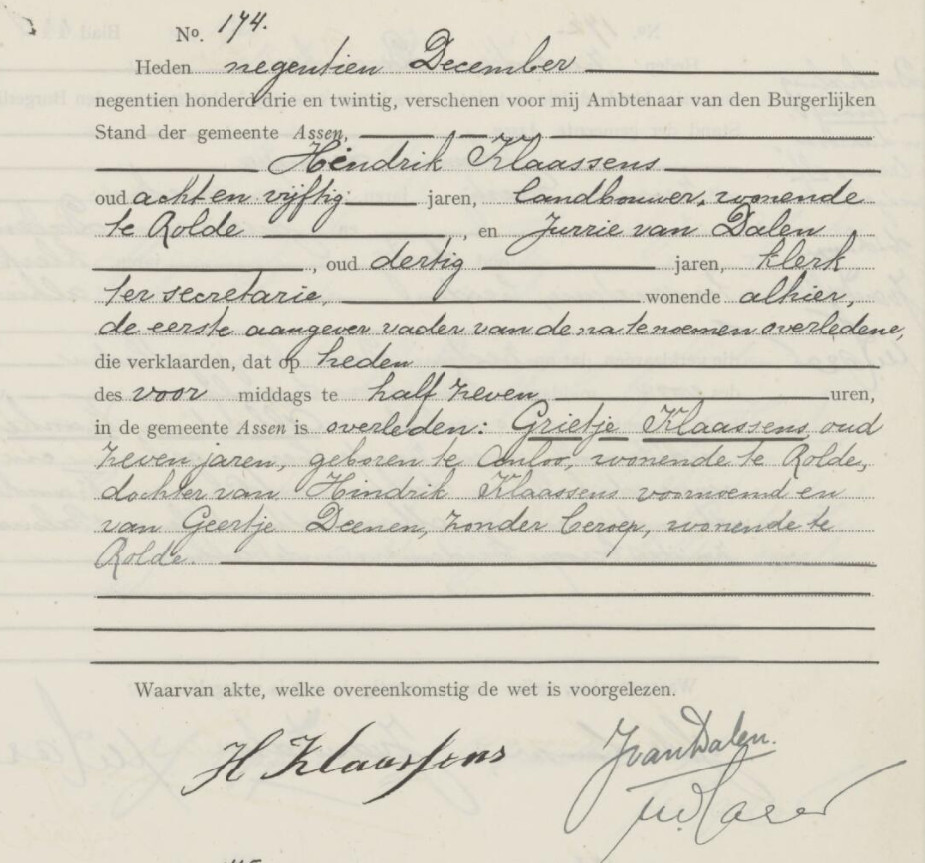 No. 174.
Heden negentien December
negentien honderd drie en twintig, verschenen voor mij Ambtenaar van den Burgerlijken
Stand der gemeente Assen,
Hindrik Klaassens
oud acht en vijftig jaren, landbouwer, wonende
te Rolde, en Jurrie van Dalen
, oud dertig jaren, klerk
ter secretarie, wonende alhier,
de eerste aangever vader van de na te noemen overledene,
die verklaarden, dat op heden
des voor middags te half zeven uren,
in de gemeente Assen is overleden: Grietje Klaassens, oud
zeven jaren, geboren te Anloo, wonende te Rolde,
dochter van Hindrik Klaassens voornoemd en
van Geertje Deenen, zonder beroep, wonende te
Rolde.
Waarvan akte, welke overeenkomstig de wet is voorgelezen.
H Klaassens
JvanDalen.